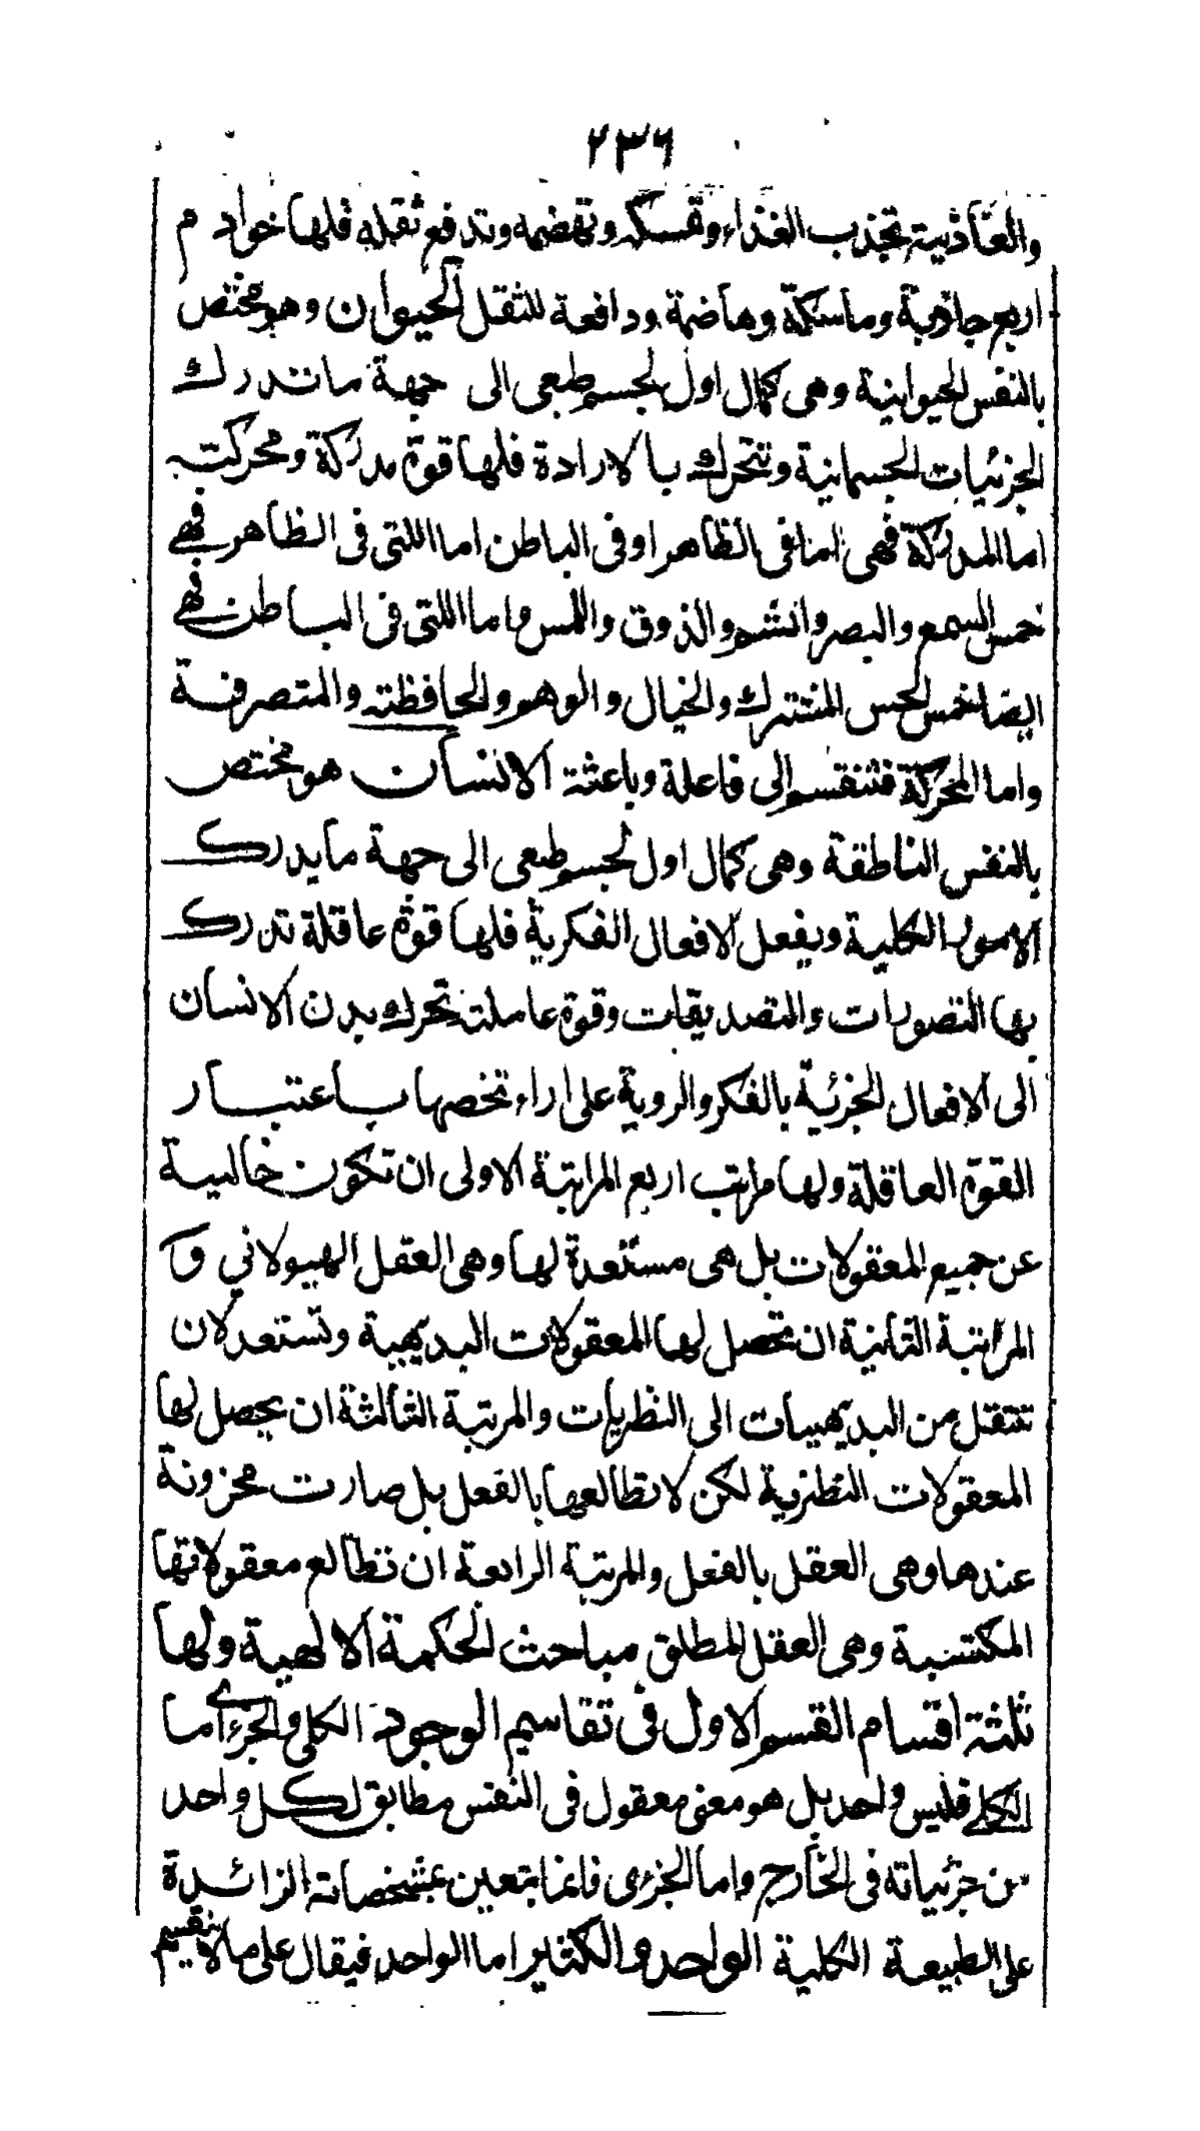 ٢٣٦
والغاذية تجذب الغذاء وتمسكه وتهضمه وتدفع ثقله فلها خوادم
اربع جاذبة وماسكة وهاضمة ودافعة للثقل الحيوان وهو مختص
بالنفس الحيوانية وهى كمال اول لجسم طبعى الى جهة ما تدرك
الجزئيات الجسمانية وتتحرك بالارادة فلها قوة مدركة ومحركة
اما المدركة فهى اما فى الظاهر او فى الباطن اما اللتى فى الظاهر فهے
خمس السمع والبصر والشم والذوق واللمس واما اللتى فى الباطن فهے
ايضا خمس الحس المشترك والخيال والوهم والحافظة والمتصرفة
واما المحركة فتنقسم الى فاعلة وباعثة الانسان هو مختص
بالنفس الناطقة وهى كمال اول لجسم طبعى الى جهة ما يدرك
الامور الكلية ويفعل الافعال الفكرية فلها قوة عاقلة تدرك
بها التصورات والتصديقات وقوة عاملة تحرك بدن الانسان
الى الافعال الجزئية بالفكر والروية على اراء تخصها باعتبار
القوة العاقلة ولها مراتب اربع المرتبة الاولى ان تكون خالية
عن جميع المعقولات بل هى مستعدة لها وهى العقل الهيولاني و
المرتبة الثانية ان تحصل لها المعقولات البديهية وتستعد لان
تنتقل من البديهيات الى النظريات والمرتبة الثالثة ان يحصل لها
المعقولات النظرية لكن لا تطالعها بالفعل بل صارت مخزونة
عندها وهى العقل بالفعل والمرتبة الرابعة ان تطالع معقولاتها
المكتسبة وهى العقل المطلق مباحث الحكمة الالهية ولها
ثلثة اقسام القسم الاول فى تقاسيم الوجود الكلى والجزءے اما
الكلے فليس واحد بل هو معنى معقول فى النفس مطابق لكل واحد
من جزئياته فى الخارج واما الجزءى فانما يتعين بمشخصاته الزائدة
على الطبيعة الكلية الواحد والكثير اما الواحد فيقال على ما لا ينقسم